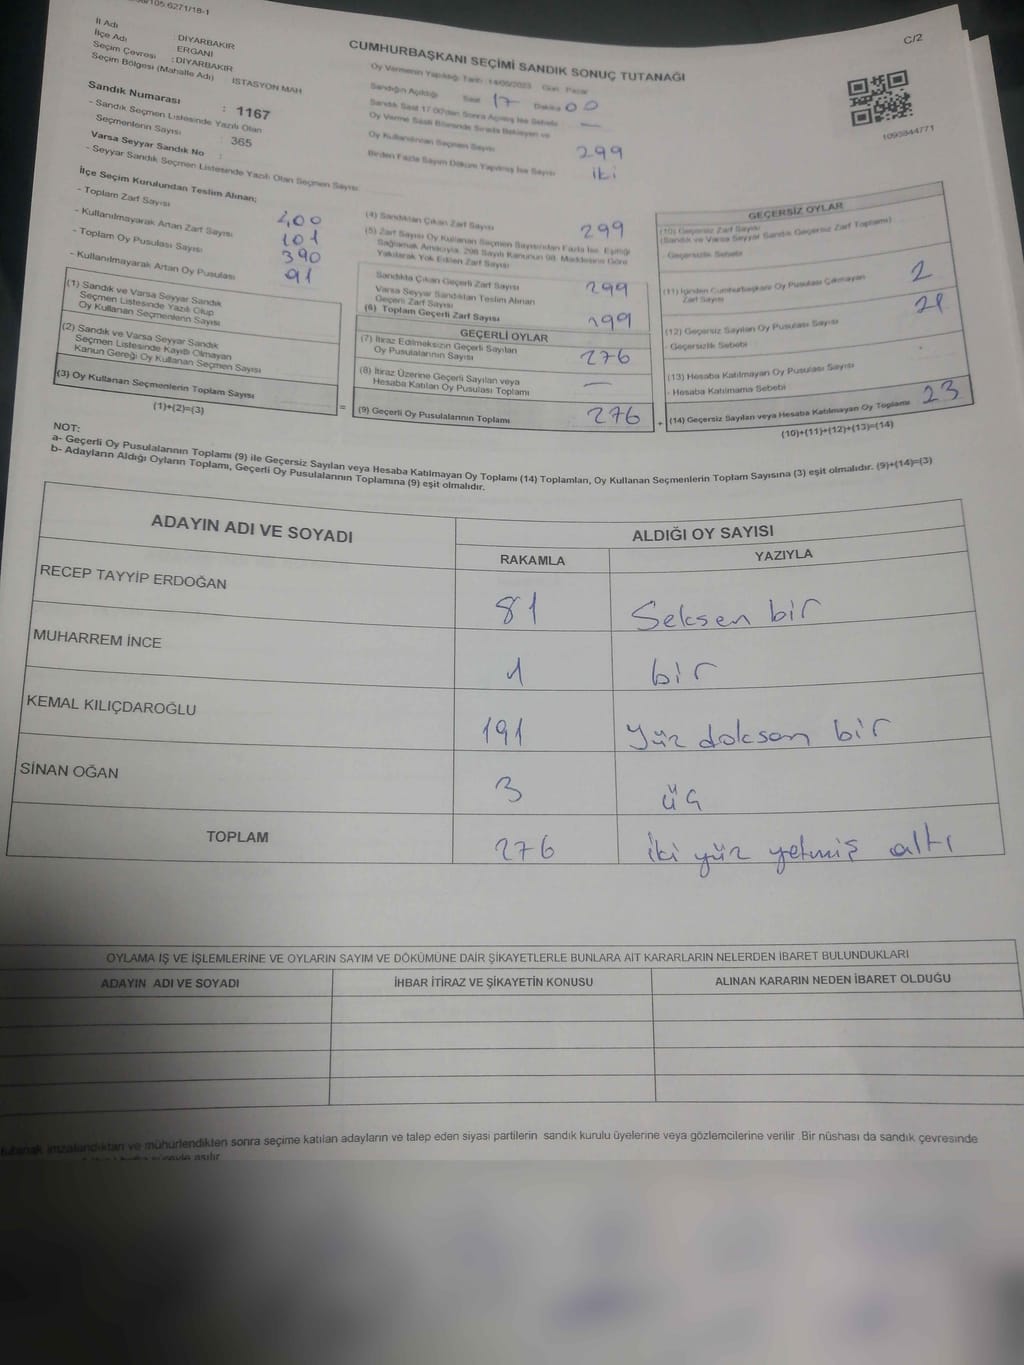 105.6271/18-1
C/2
İl Adı : DİYARBAKIR
İlçe Adı : ERGANİ
Seçim Çevresi : DİYARBAKIR
Seçim Bölgesi (Mahalle Adı) İSTASYON MAH
CUMHURBAŞKANI SEÇİMİ SANDIK SONUÇ TUTANAĞI
Oy Vermenin Yapıldığı Tarih : 14/05/2023 Gün : Pazar
Sandığın Açıldığı Saat 17 Dakika 00
Sandık Saat 17.00'den Sonra Açılmış İse Sebebi —
Oy Verme Saati Bitiminde Sırada Bekleyen ve
Oy Kullandırılan Seçmen Sayısı 299
Birden Fazla Sayım Döküm Yapılmış İse Sayısı iki
1093844771
Sandık Numarası : 1167
- Sandık Seçmen Listesinde Yazılı Olan
Seçmenlerin Sayısı : 365
Varsa Seyyar Sandık No :
- Seyyar Sandık Seçmen Listesinde Yazılı Olan Seçmen Sayısı
İlçe Seçim Kurulundan Teslim Alınan;
- Toplam Zarf Sayısı 400
- Kullanılmayarak Artan Zarf Sayısı 101
- Toplam Oy Pusulası Sayısı 390
- Kullanılmayarak Artan Oy Pusulası 91
(1) Sandık ve Varsa Seyyar Sandık
Seçmen Listesinde Yazılı Olup
Oy Kullanan Seçmenlerin Sayısı
(2) Sandık ve Varsa Seyyar Sandık
Seçmen Listesinde Kayıtlı Olmayan
Kanun Gereği Oy Kullanan Seçmen Sayısı
(3) Oy Kullanan Seçmenlerin Toplam Sayısı
(1)+(2)=(3)
=
(4) Sandıktan Çıkan Zarf Sayısı 299
(5) Zarf Sayısı Oy Kullanan Seçmen Sayısından Fazla İse, Eşitliği
Sağlamak Amacıyla, 298 Sayılı Kanunun 98. Maddesine Göre
Yakılarak Yok Edilen Zarf Sayısı
Sandıkta Çıkan Geçerli Zarf Sayısı 299
Varsa Seyyar Sandıktan Teslim Alınan
Geçerli Zarf Sayısı
(6) Toplam Geçerli Zarf Sayısı 199
GEÇERLİ OYLAR
(7) İtiraz Edilmeksizin Geçerli Sayılan
Oy Pusulalarının Sayısı 276
(8) İtiraz Üzerine Geçerli Sayılan veya
Hesaba Katılan Oy Pusulası Toplamı —
(9) Geçerli Oy Pusulalarının Toplamı 276
+
GEÇERSİZ OYLAR
(10) Geçersiz Zarf Sayısı
(Sandık ve Varsa Seyyar Sandık Geçersiz Zarf Toplamı)
- Geçersizlik Sebebi
(11) İçinden Cumhurbaşkanı Oy Pusulası Çıkmayan
Zarf Sayısı 2
(12) Geçersiz Sayılan Oy Pusulası Sayısı 21
- Geçersizlik Sebebi
(13) Hesaba Katılmayan Oy Pusulası Sayısı
- Hesaba Katılmama Sebebi
(14) Geçersiz Sayılan veya Hesaba Katılmayan Oy Toplamı 23
(10)+(11)+(12)+(13)=(14)
NOT:
a- Geçerli Oy Pusulalarının Toplamı (9) ile Geçersiz Sayılan veya Hesaba Katılmayan Oy Toplamı (14) Toplamları, Oy Kullanan Seçmenlerin Toplam Sayısına (3) eşit olmalıdır. (9)+(14)=(3)
b- Adayların Aldığı Oyların Toplamı, Geçerli Oy Pusulalarının Toplamına (9) eşit olmalıdır.
ADAYIN ADI VE SOYADI
ALDIĞI OY SAYISI
RAKAMLA YAZIYLA
RECEP TAYYİP ERDOĞAN 81 Seksen bir
MUHARREM İNCE 1 bir
KEMAL KILIÇDAROĞLU 191 Yüz doksan bir
SİNAN OĞAN 3 üç
TOPLAM 276 iki yüz yetmiş altı
OYLAMA İŞ VE İŞLEMLERİNE VE OYLARIN SAYIM VE DÖKÜMÜNE DAİR ŞİKAYETLERLE BUNLARA AİT KARARLARIN NELERDEN İBARET BULUNDUKLARI
ADAYIN ADI VE SOYADI İHBAR İTİRAZ VE ŞİKAYETİN KONUSU ALINAN KARARIN NEDEN İBARET OLDUĞU
tutanak imzalandıktan ve mühürlendikten sonra seçime katılan adayların ve talep eden siyasi partilerin sandık kurulu üyelerine veya gözlemcilerine verilir. Bir nüshası da sandık çevresinde